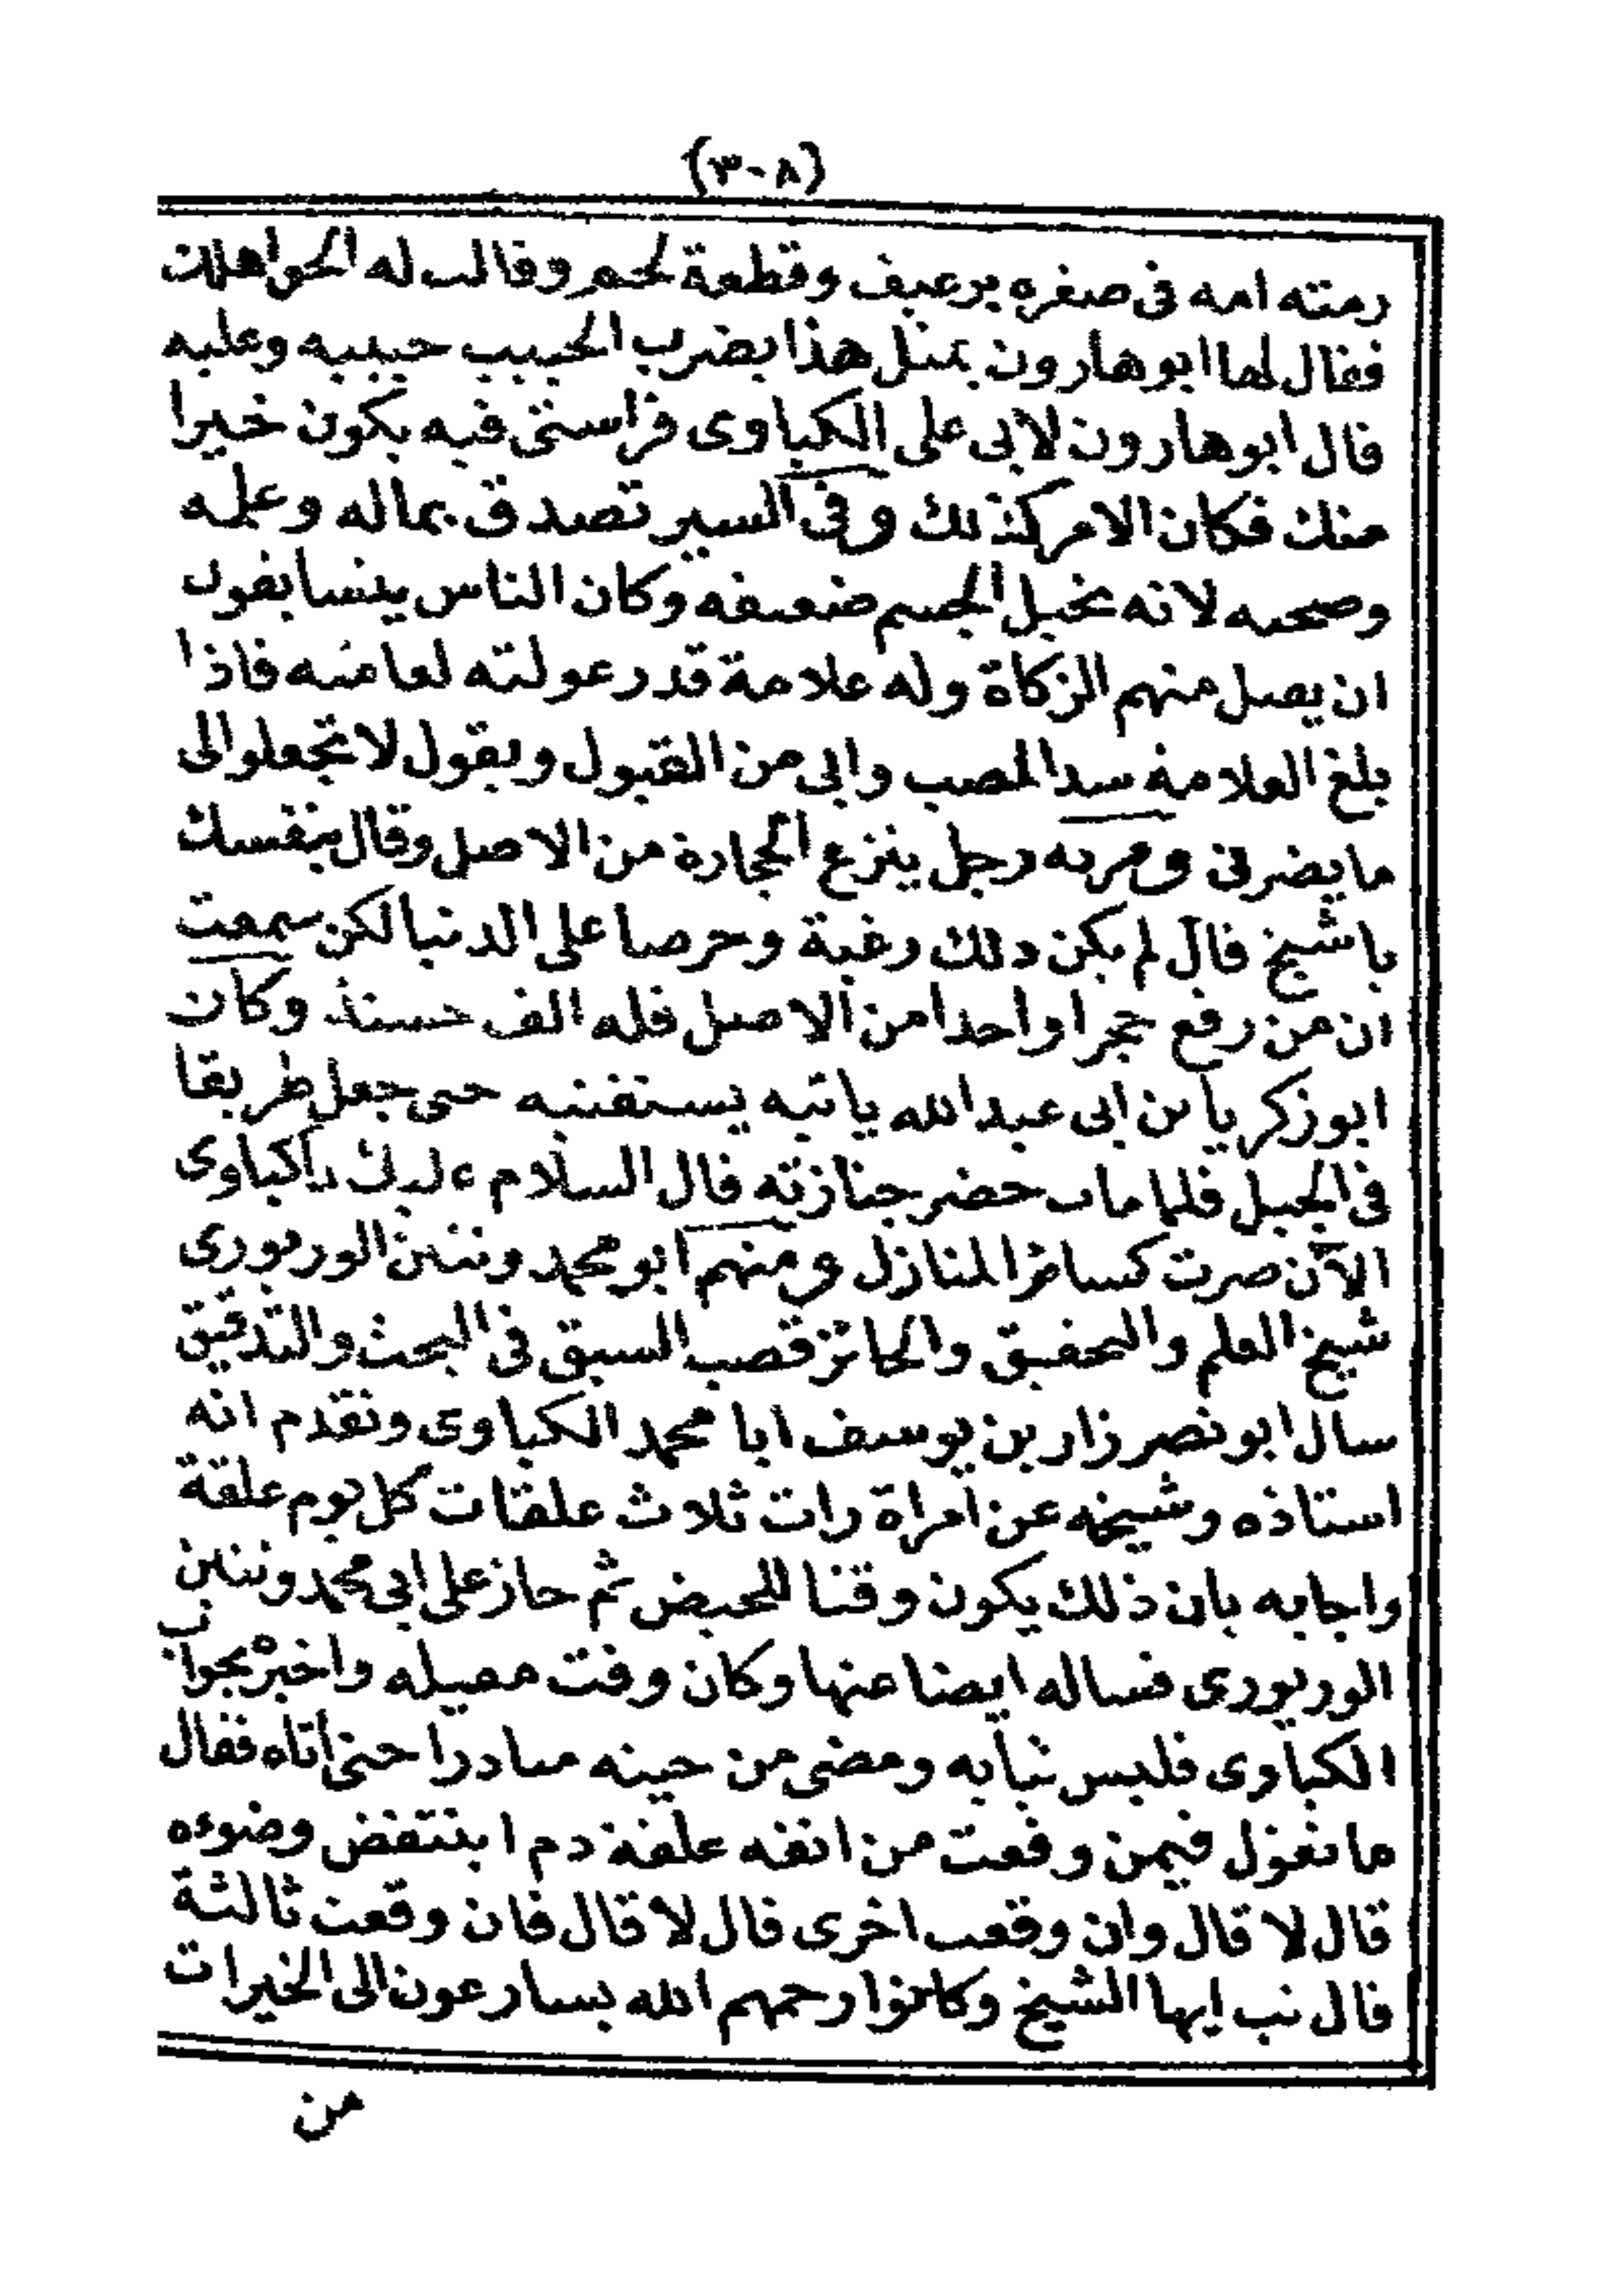 (٣٠٨)
رمته امه فى صغره برغيف وقطعة لحم وقالت له الحق اهلك
فقال لها ابو هارون بمثل هذا يضرب الحبيب حبيبه وعليه
قال ابو هارون لابى على الكباوى فراستى فيه يكون خيرا
منك فكان الامر كذلك وفى السير تصدق بماله وعلمه
وصحته لانه نحيل الجسم ضعيفه وكان الناس يتسابقون
ان يصل منهم الزكاة وله علامة قدر عولته لعامه فاذا
بلغ العلامة سد المصب وابى من القبول ويقول لا تجعلوا لى
ما يضرنى ومر به رجل ينزع الحجارة من الاصل وقال بنفسك
يا شيخ قال لم يكن ذلك رغبة وحرصا على الدنيا لكن سمعت
ان من رفع حجرا واحدا من الاصل فله الف حسنة وكان
ابو زكريا بن ابى عبد الله ياتيه يستفتيه حتى جعل طريقا
فى الجبل فلما مات حضر جنازته قال السلام عليك يا كباوى
الآن صرت كسائر المنازل ومنهم ابو محمد ونتين الوريورى
شيخ العلم والتحقيق والحائز قصب السبق فى البحث والتدقيق
سال ابو نصر زار بن يوسف ابا محمد الكباوى وتقدم انه
استاذه وشيخه عن امراة رات ثلاث علقات كل يوم علقة
واجابه بان ذلك يكون وقتا للحيض ثم جاز على ابى محمد ونتين
الوريورى فساله ايضا عنها وكان وقت مقيله واخبره بجواب
الكباوى فلبس ثيابه ومضى من حينه مبادرا حتى اتاه فقال
ما تقول فيمن وقعت من انفه علقة دم اينتقض وضوءه
قال لا قال وان وقعت اخرى قال لا قال فان وقعت ثالثة
قال تب ايها الشيخ وكانوا رحمهم الله يسارعون الى الخيرات
من